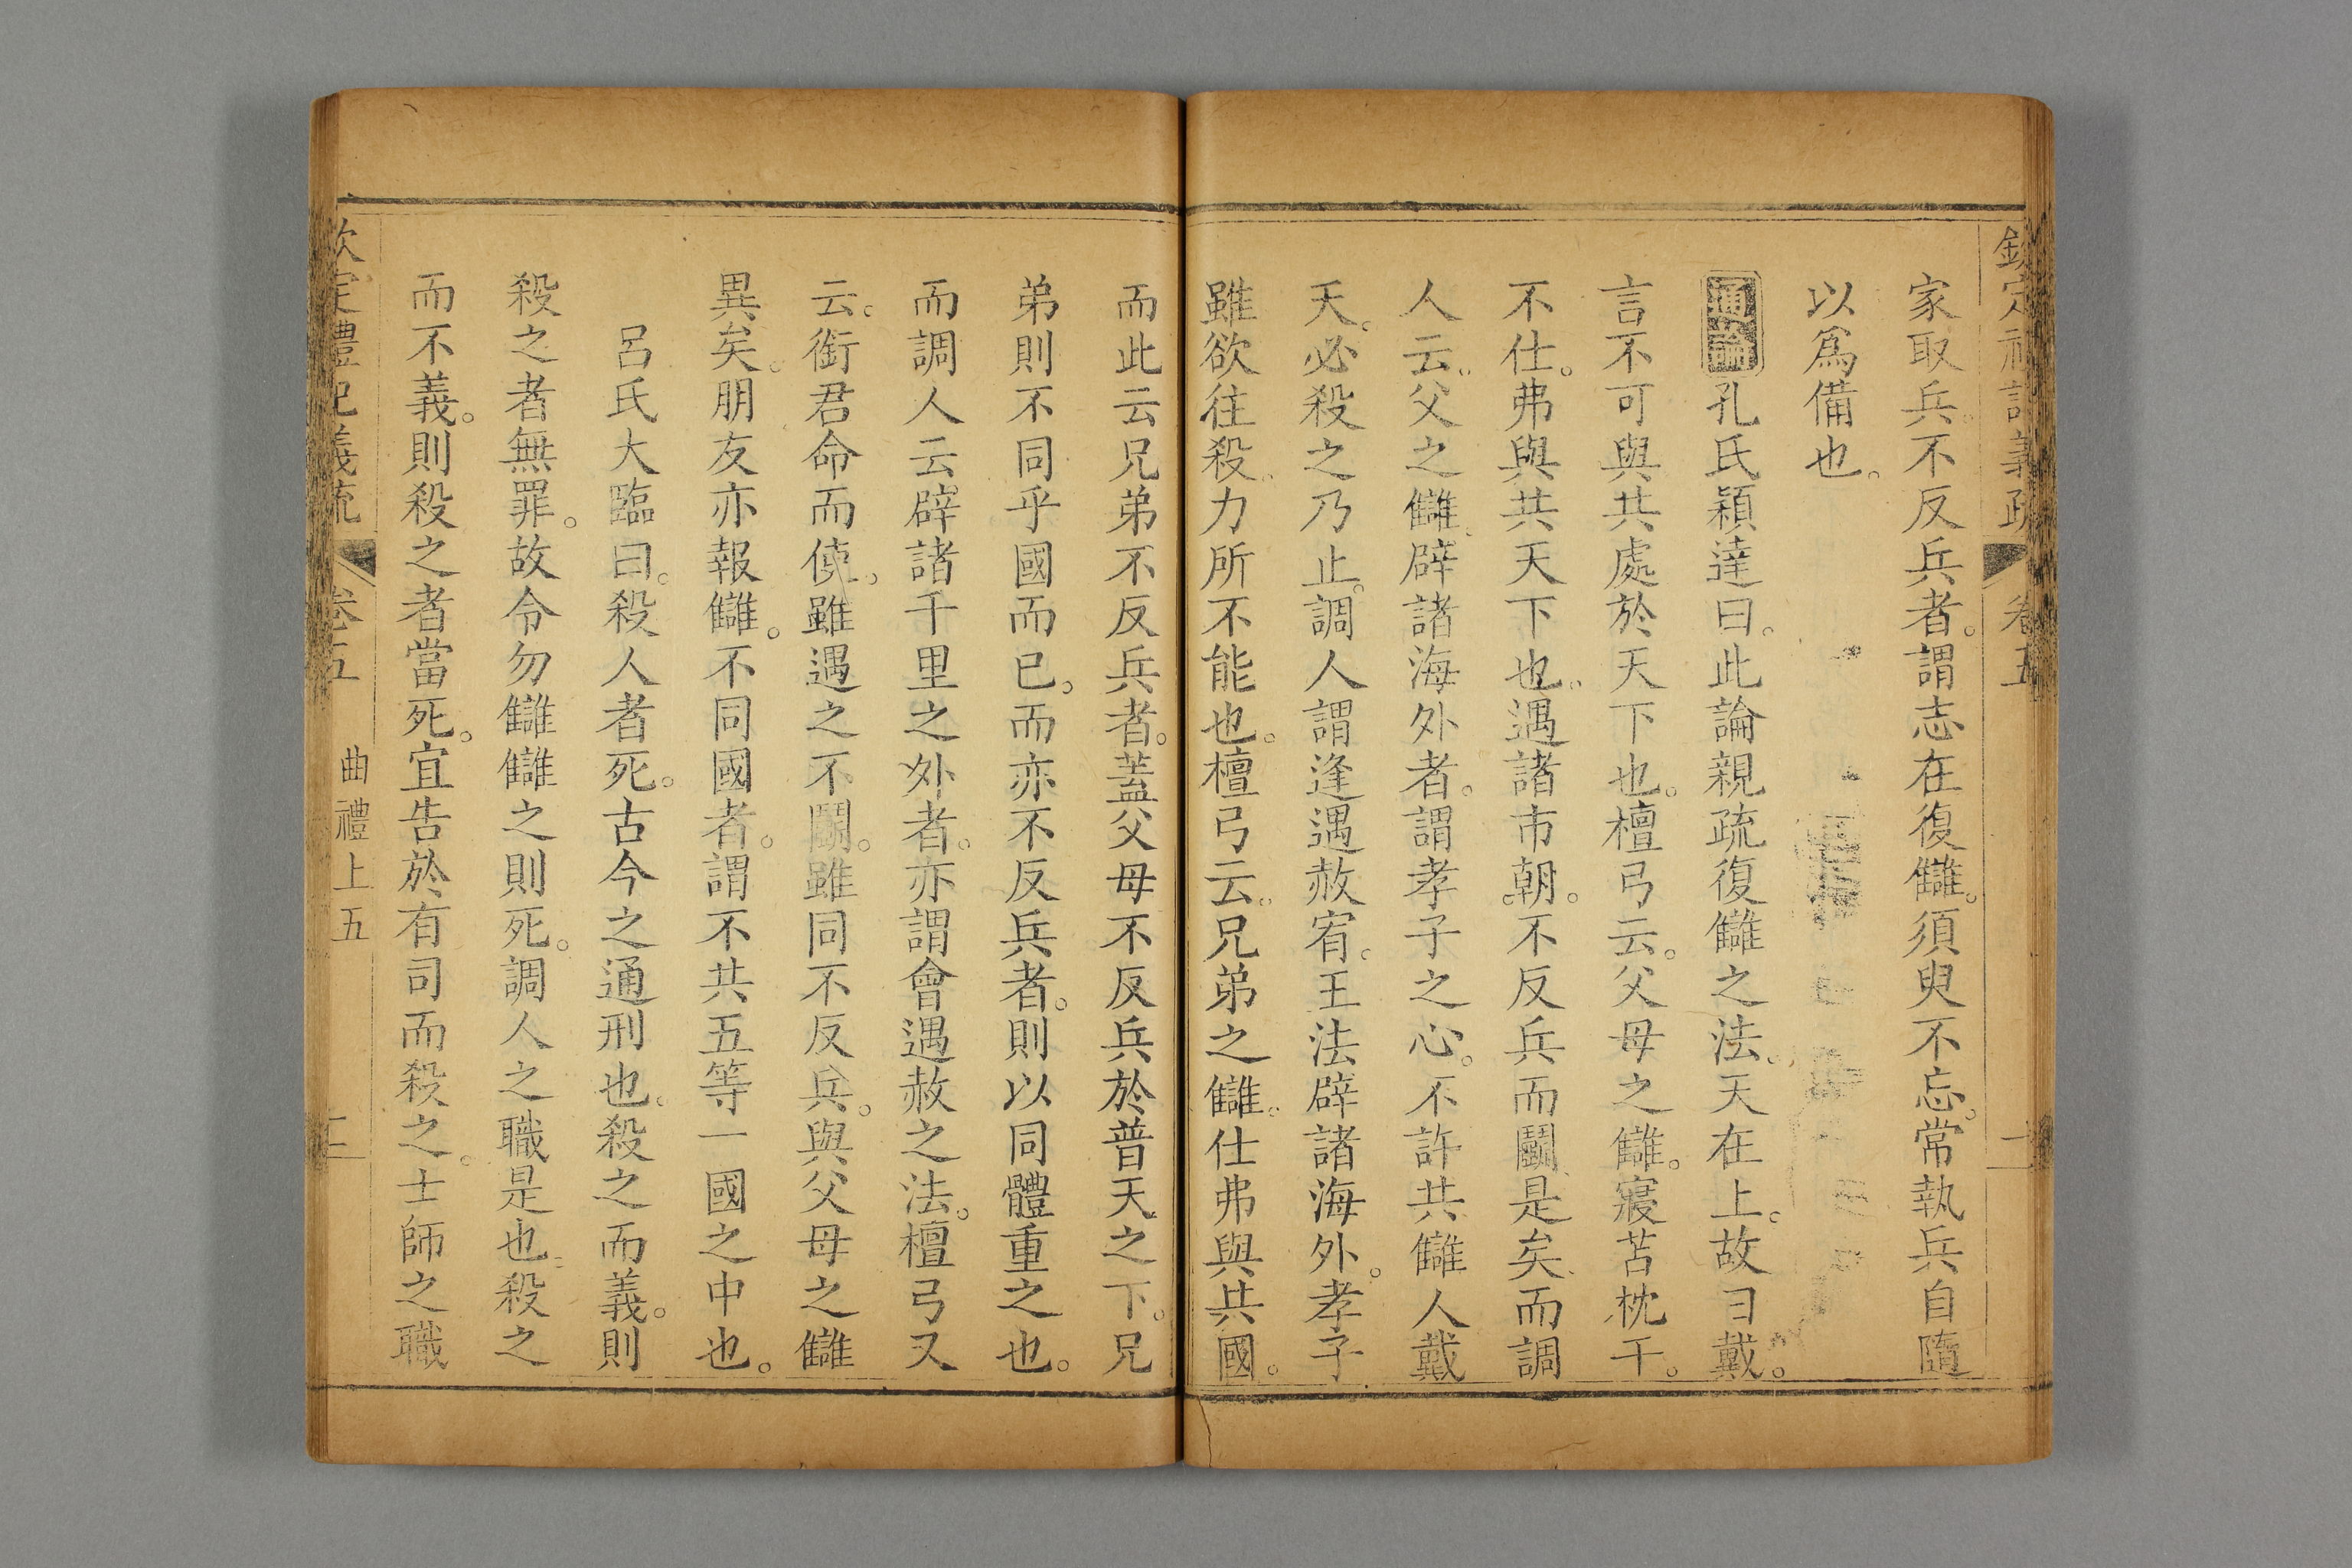 家取兵。不反兵者。謂志在復讎。須臾不忘。常執兵自隨
以爲備也。
通論孔氏穎達曰。此論親疏復讎之法。天在上。故曰戴。
言不可與共處於天下也。檀弓云。父母之讎。寢苫枕干。
不仕。弗與共天下也。遇諸市朝。不反兵而鬭。是矣。而調
人云。父之讎。辟諸海外者。謂孝子之心。不許共讎人戴
天。必殺之乃止。調人謂逢遇赦宥。王法辟諸海外。孝子
雖欲往殺。力所不能也。檀弓云。兄弟之讎。仕弗與共國。
而此云兄弟不反兵者。蓋父母不反兵於普天之下。兄
弟則不同乎國而已。而亦不反兵者。則以同體重之也。
而調人云。辟諸千里之外者。亦謂會遇赦之法。檀弓又
云。銜君命而使。雖遇之不鬭。雖同不反兵。與父母之讎
異矣。朋友亦報讎。不同國者。謂不共五等一國之中也。
呂氏大臨曰。殺人者死。古今之通刑也。殺之而義。則
殺之者無罪。故令勿讎讎之則死。調人之職是也。殺之
而不義。則殺之者當死。宜告於有司而殺之。士師之職
欽定禮記義疏 卷五 曲禮上五 二